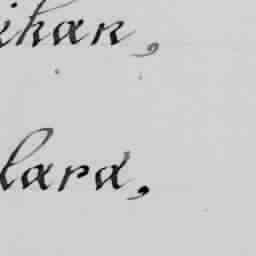 ihan,
lard,